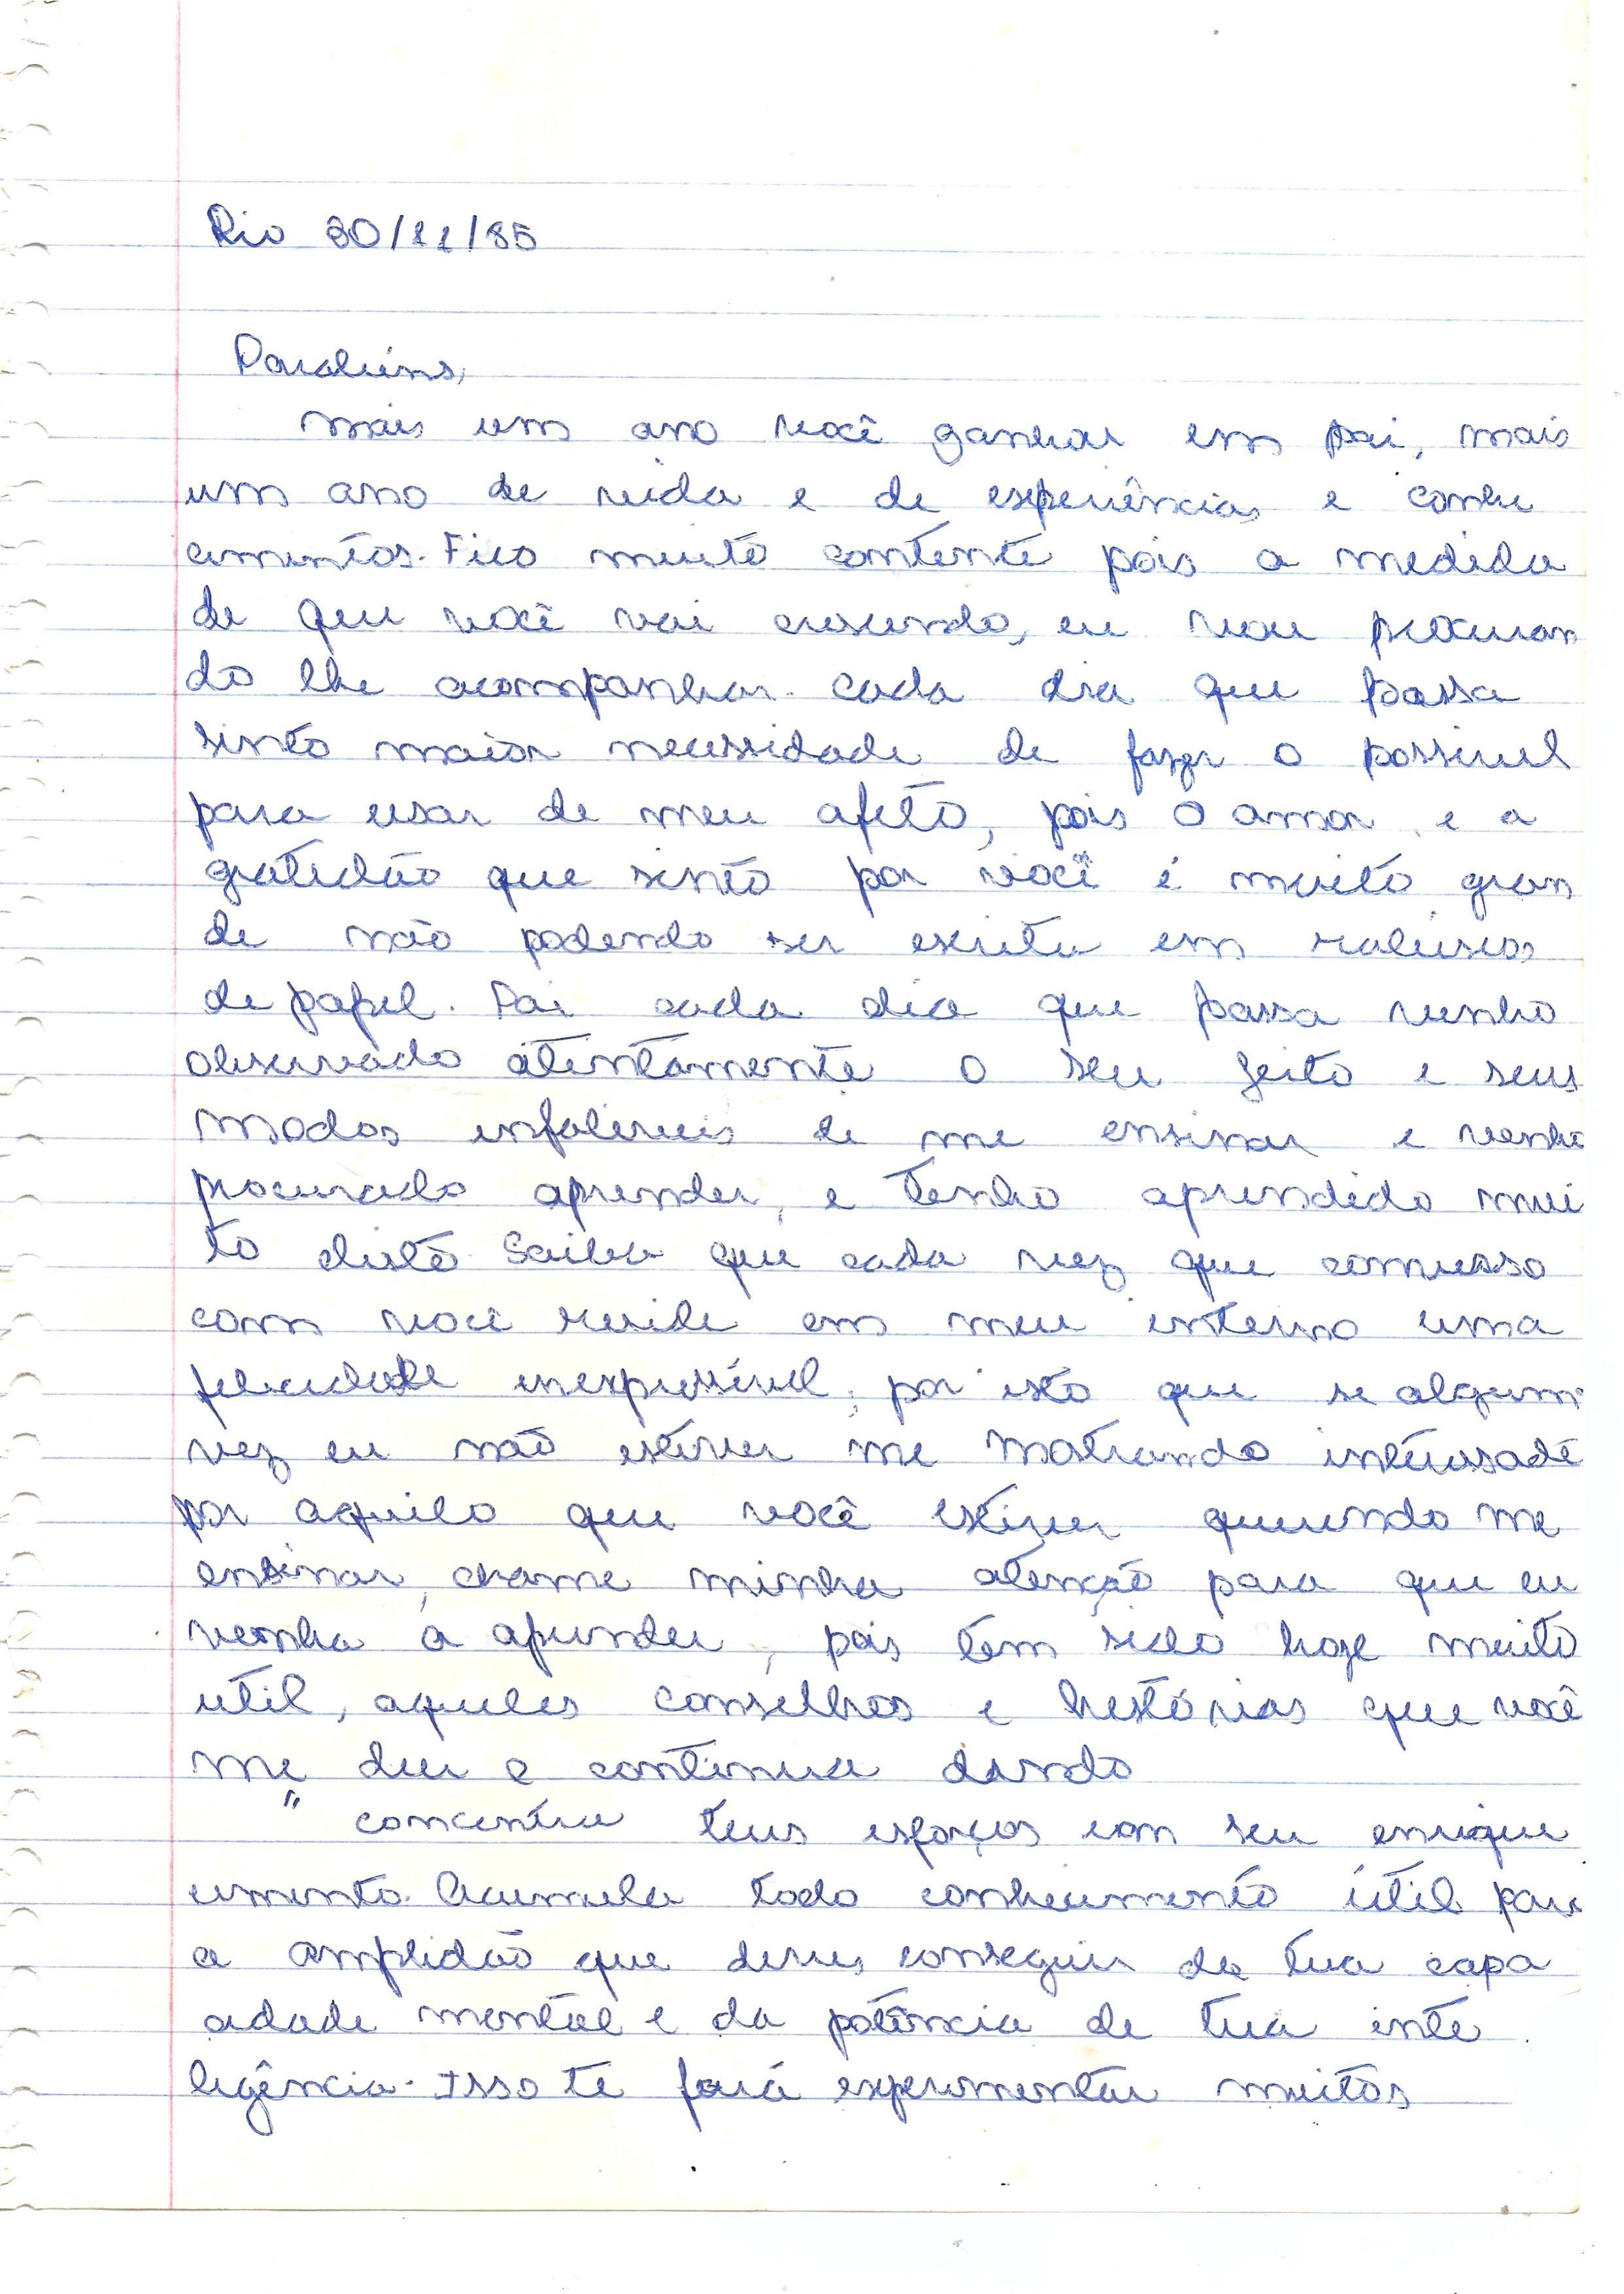 Rio 30/11/85
Parabéns,
mais um ano você ganhar em pai, mais
um ano de vida e de experiências e conhe
cimentos. Fico muito contente pois a medida
de que você vai crescendo, eu vou procuran
do lhe acompanhar. cada dia que passa
sinto maior necessidade de fazer o possivel
para usar de meu afeto, pois o amor e a
gratidão que sinto por você é muito gran
de não podendo ser escrita em
de papel. Pai cada dia que passa venho
observado atentamente o seu jeito e seus
modos infaliveis de me ensinar e venho
procurado aprender, e tenho aprendido mui
to disto. Saiba que cada vez que converso
com você reside em meu interno uma
felicidade inexpressível, por isto que se alguma
vez eu não estiver me mostrando interessado
por aquilo que você estiver querendo me
ensinar, chame minha atenção para que eu
venha a aprender, pois tem sido hoje muito
util, aqueles conselhos e histórias que você
me deu e continua dando
" concentre teus esforços em seu enrique
cimento. Acumula todo conhecimento útil para
a amplidão que deves conseguir da tua capa
cidade mental e da potência de tua inte
ligência. Isso te fará experimentar muitos